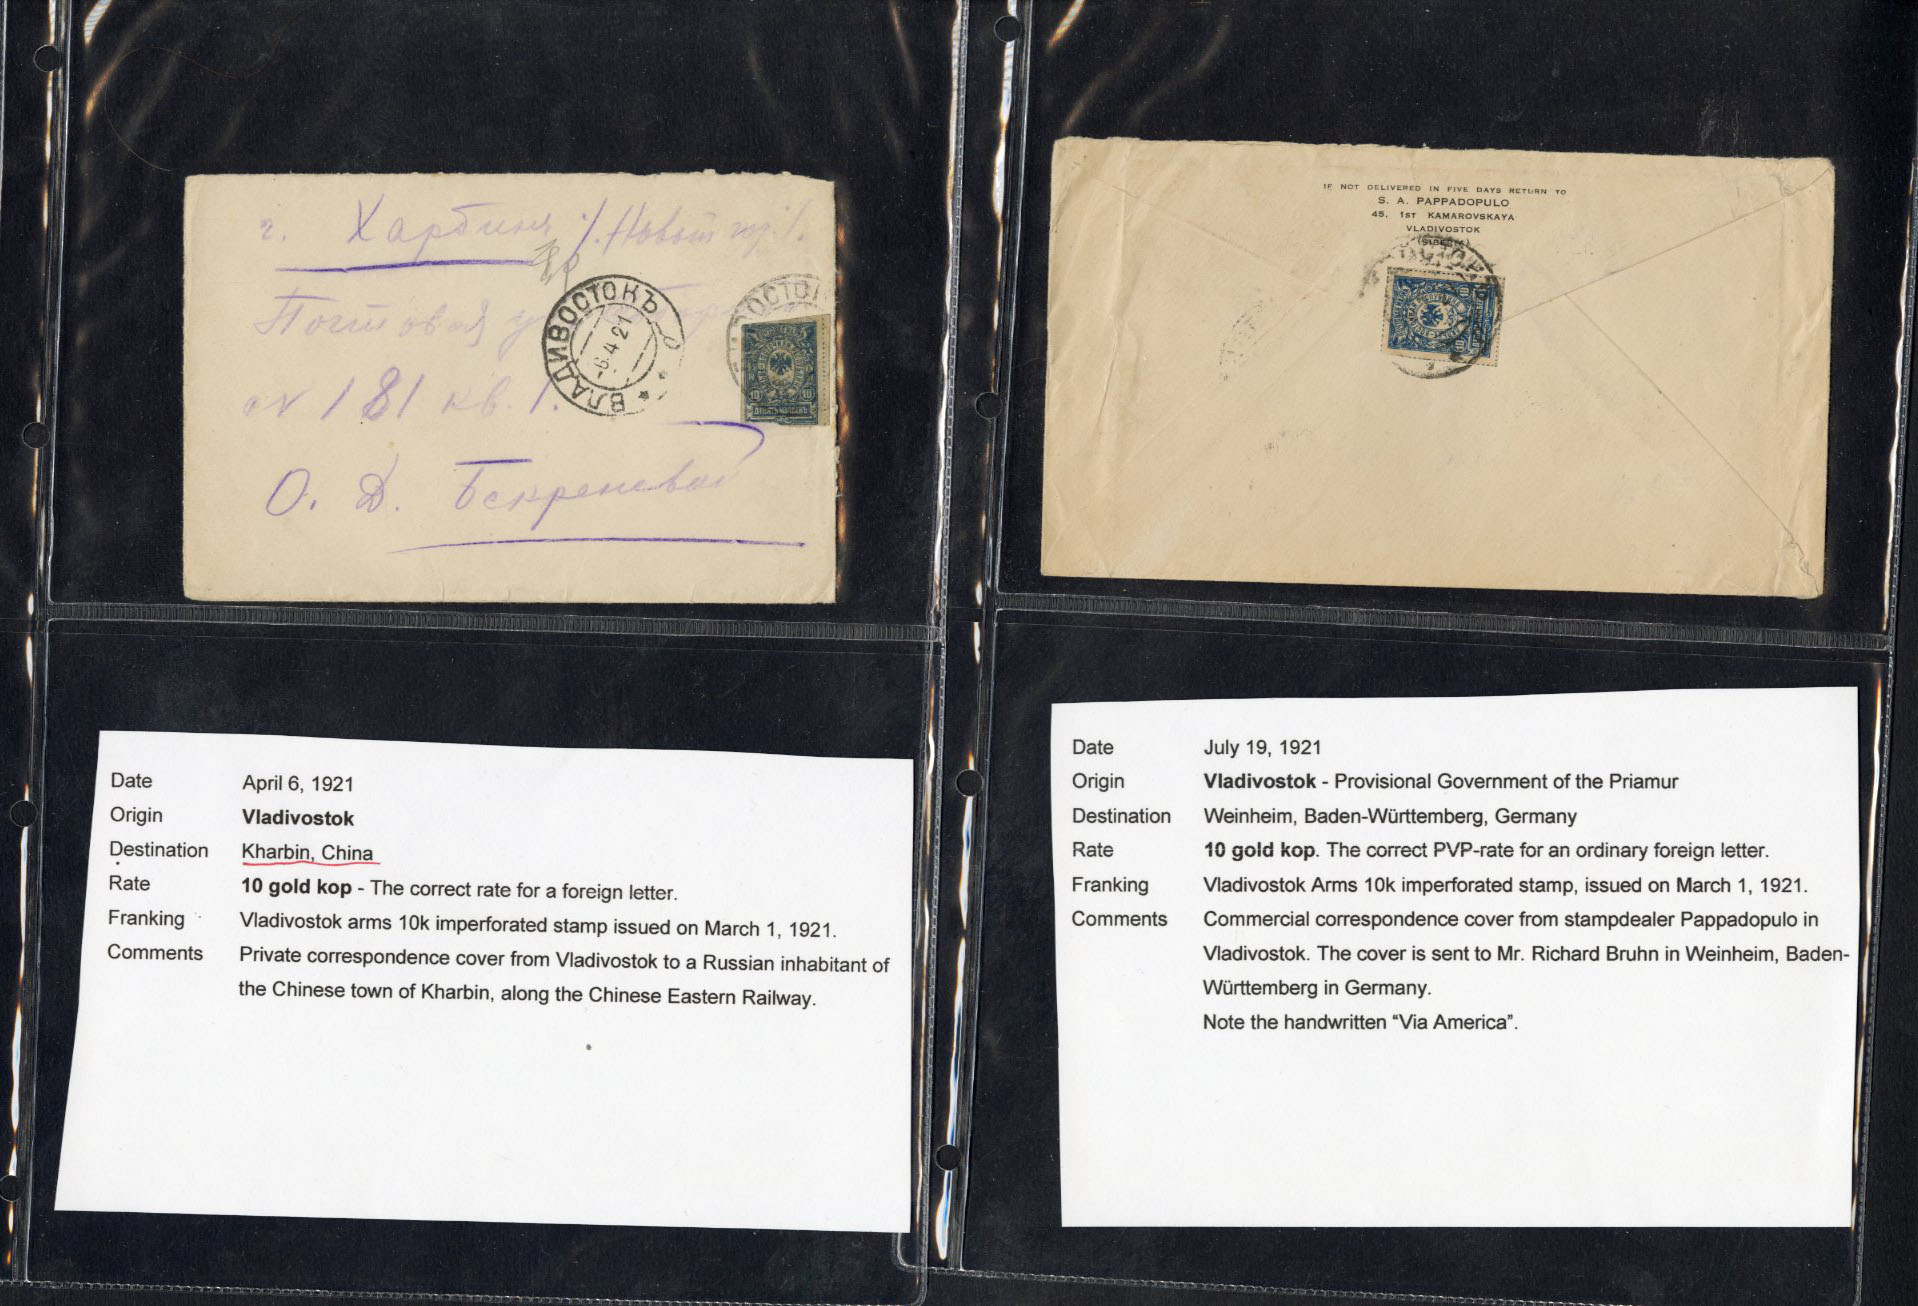 г. Харбинъ /. Новый гор. /.
Почтовая у
№ 181 кв. 1.
О. Д.
ВЛАДИВОСТОКЪ
-6.4.21
ВОСТО
10 10
ДЕСЯТЬ КОПѢЕКЪ
IF NOT DELIVERED IN FIVE DAYS RETURN TO
S. A. PAPPADOPULO
45, 1ST KAMAROVSKAYA
VLADIVOSTOK
(SIBERIA)
10 10
Date April 6, 1921
Origin Vladivostok
Destination Kharbin, China
Rate 10 gold kop - The correct rate for a foreign letter.
Franking Vladivostok arms 10k imperforated stamp issued on March 1, 1921.
Comments Private correspondence cover from Vladivostok to a Russian inhabitant of
the Chinese town of Kharbin, along the Chinese Eastern Railway.
Date July 19, 1921
Origin Vladivostok - Provisional Government of the Priamur
Destination Weinheim, Baden-Württemberg, Germany
Rate 10 gold kop. The correct PVP-rate for an ordinary foreign letter.
Franking Vladivostok Arms 10k imperforated stamp, issued on March 1, 1921.
Comments Commercial correspondence cover from stampdealer Pappadopulo in
Vladivostok. The cover is sent to Mr. Richard Bruhn in Weinheim, Baden-
Württemberg in Germany.
Note the handwritten “Via America”.